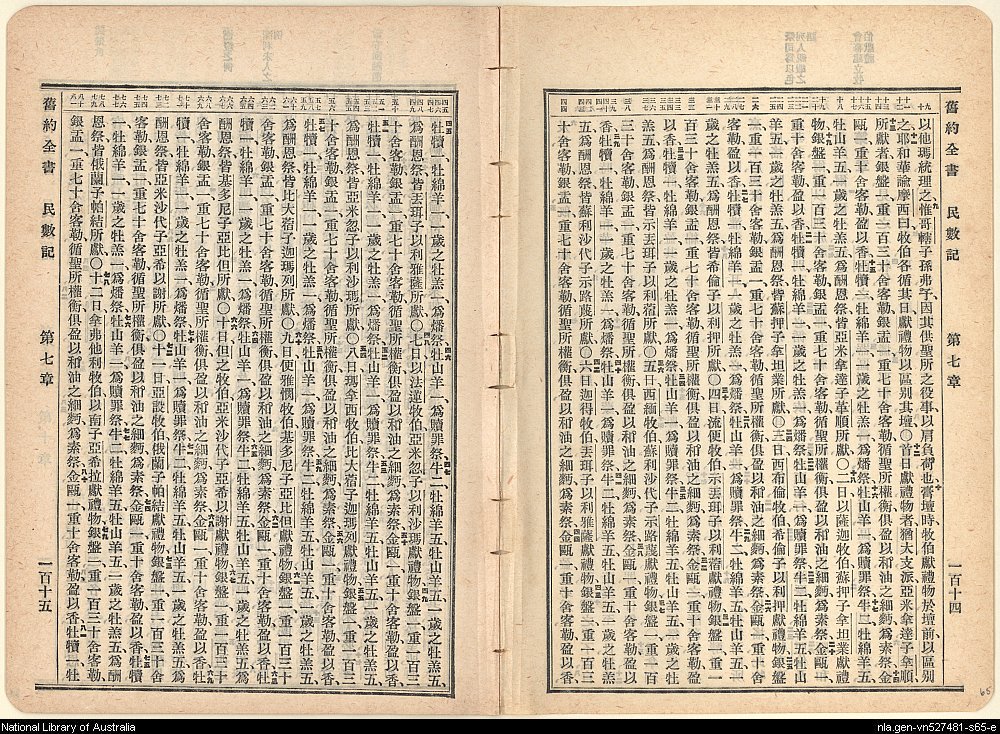 舊約全書 民數記 第七章 一百十四
以他瑪統理之惟哥轄子孫弗予因其俱聖所之役事以肩負荷也膏壇時牧伯獻禮物於壇前以區別
之耶和華諭摩西曰牧伯各循其日獻禮物以區別其壇〇首日獻禮物者猶大支派亞米拿達子拿順
所獻者銀盤一重一百三十舍客勒銀盂一重七十舍客勒循聖所權衡俱盈以和油之細麪爲素祭金
甌一重十舍客勒盈以香牡犢一牡綿羊一一歲之牡羔一爲燔祭牡山羊一爲贖罪祭牛二牡綿羊五
牡山羊五一歲之牡羔五爲酬恩祭皆亞米拿達子拿順所獻〇二日以薩迦牧伯蘇押子拿坦業獻禮
物銀盤一重一百三十舍客勒銀盂一重七十舍客勒循聖所權衡俱盈以和油之細麪爲素祭金甌一
重十舍客勒盈以香牡犢一牡綿羊一一歲之牡羔一爲燔祭牡山羊一爲贖罪祭牛二牡綿羊五牡山
羊五一歲之牡羔五爲酬恩祭皆蘇押子拿坦業所獻〇三日西布倫牧伯希倫子以利押獻禮物銀盤
一重一百三十舍客勒銀盂一重七十舍客勒循聖所權衡俱盈以和油之細麪爲素祭金甌一重十舍
客勒盈以香牡犢一牡綿羊一一歲之牡羔一爲燔祭牡山羊一爲贖罪祭牛二牡綿羊五牡山羊五一
歲之牡羔五爲酬恩祭皆希倫子以利押所獻〇四日流便牧伯示丟珥子以利蓿獻禮物銀盤一重一
百三十舍客勒銀盂一重七十舍客勒循聖所權衡俱盈以和油之細麪爲素祭金甌一重十舍客勒盈
以香牡犢一牡綿羊一一歲之牡羔一爲燔祭牡山羊一爲贖罪祭牛二牡綿羊五牡山羊五一歲之牡
羔五爲酬恩祭皆示丟珥子以利蓿所獻〇五日西緬牧伯蘇利沙代子示路蔑獻禮物銀盤一重一百
三十舍客勒銀盂一重七十舍客勒循聖所權衡俱盈以和油之細麪爲素祭金甌一重十舍客勒盈以
香牡犢一牡綿羊一一歲之牡羔一爲燔祭牡山羊一爲贖罪祭牛二牡綿羊五牡山羊五一歲之牡羔
五爲酬恩祭皆蘇利沙代子示路蔑所獻〇六日迦得牧伯丟珥子以利雅薩獻禮物銀盤一重一百三
十舍客勒銀盂一重七十舍客勒循聖所權衡俱盈以和油之細麪爲素祭金甌一重十舍客勒盈以香
牡犢一牡綿羊一一歲之牡羔一爲燔祭牡山羊一爲贖罪祭牛二牡綿羊五牡山羊五一歲之牡羔五
爲酬恩祭皆丟珥子以利雅薩所獻〇七日以法蓮牧伯亞米忽子以利沙瑪獻禮物銀盤一重一百三
十舍客勒銀盂一重七十舍客勒循聖所權衡俱盈以和油之細麪爲素祭金甌一重十舍客勒盈以香
牡犢一牡綿羊一一歲之牡羔一爲燔祭牡山羊一爲贖罪祭牛二牡綿羊五牡山羊五一歲之牡羔五
爲酬恩祭皆亞米忽子以利沙瑪所獻〇八日瑪拿西牧伯比大蓿子迦瑪列獻禮物銀盤一重一百三
十舍客勒銀盂一重七十舍客勒循聖所權衡俱盈以和油之細麪爲素祭金甌一重十舍客勒盈以香
牡犢一牡綿羊一一歲之牡羔一爲燔祭牡山羊一爲贖罪祭牛二牡綿羊五牡山羊五一歲之牡羔五
爲酬恩祭皆比大蓿子迦瑪列所獻〇九日便雅憫牧伯基多尼子亞比但獻禮物銀盤一重一百三十
舍客勒銀盂一重七十舍客勒循聖所權衡俱盈以和油之細麪爲素祭金甌一重十舍客勒盈以香牡
犢一牡綿羊一一歲之牡羔一爲燔祭牡山羊一爲贖罪祭牛二牡綿羊五牡山羊五一歲之牡羔五爲
酬恩祭皆基多尼子亞比但所獻〇十日但之牧伯亞米沙代子亞希以謝獻禮物銀盤一重一百三十
舍客勒銀盂一重七十舍客勒循聖所權衡俱盈以和油之細麪爲素祭金甌一重十舍客勒盈以香牡
犢一牡綿羊一一歲之牡羔一爲燔祭牡山羊一爲贖罪祭牛二牡綿羊五牡山羊五一歲之牡羔五爲
酬恩祭皆亞米沙代子亞希以謝所獻〇十一日亞設牧伯俄蘭子帕結獻禮物銀盤一重一百三十舍
客勒銀盂一重七十舍客勒循聖所權衡俱盈以和油之細麪爲素祭金甌一重十舍客勒盈以香牡犢
一牡綿羊一一歲之牡羔一爲燔祭牡山羊一爲贖罪祭牛二牡綿羊五牡山羊五一歲之牡羔五爲酬
恩祭皆俄蘭子帕結所獻〇十二日拿弗他利牧伯以南子亞希拉獻禮物銀盤一重一百三十舍客勒
銀盂一重七十舍客勒循聖所權衡俱盈以和油之細麪爲素祭金甌一重十舍客勒盈以香牡犢一牡
舊約全書 民數記 第七章 一百十五
65
National Library of Australia
nla.gen-vn527481-s65-e